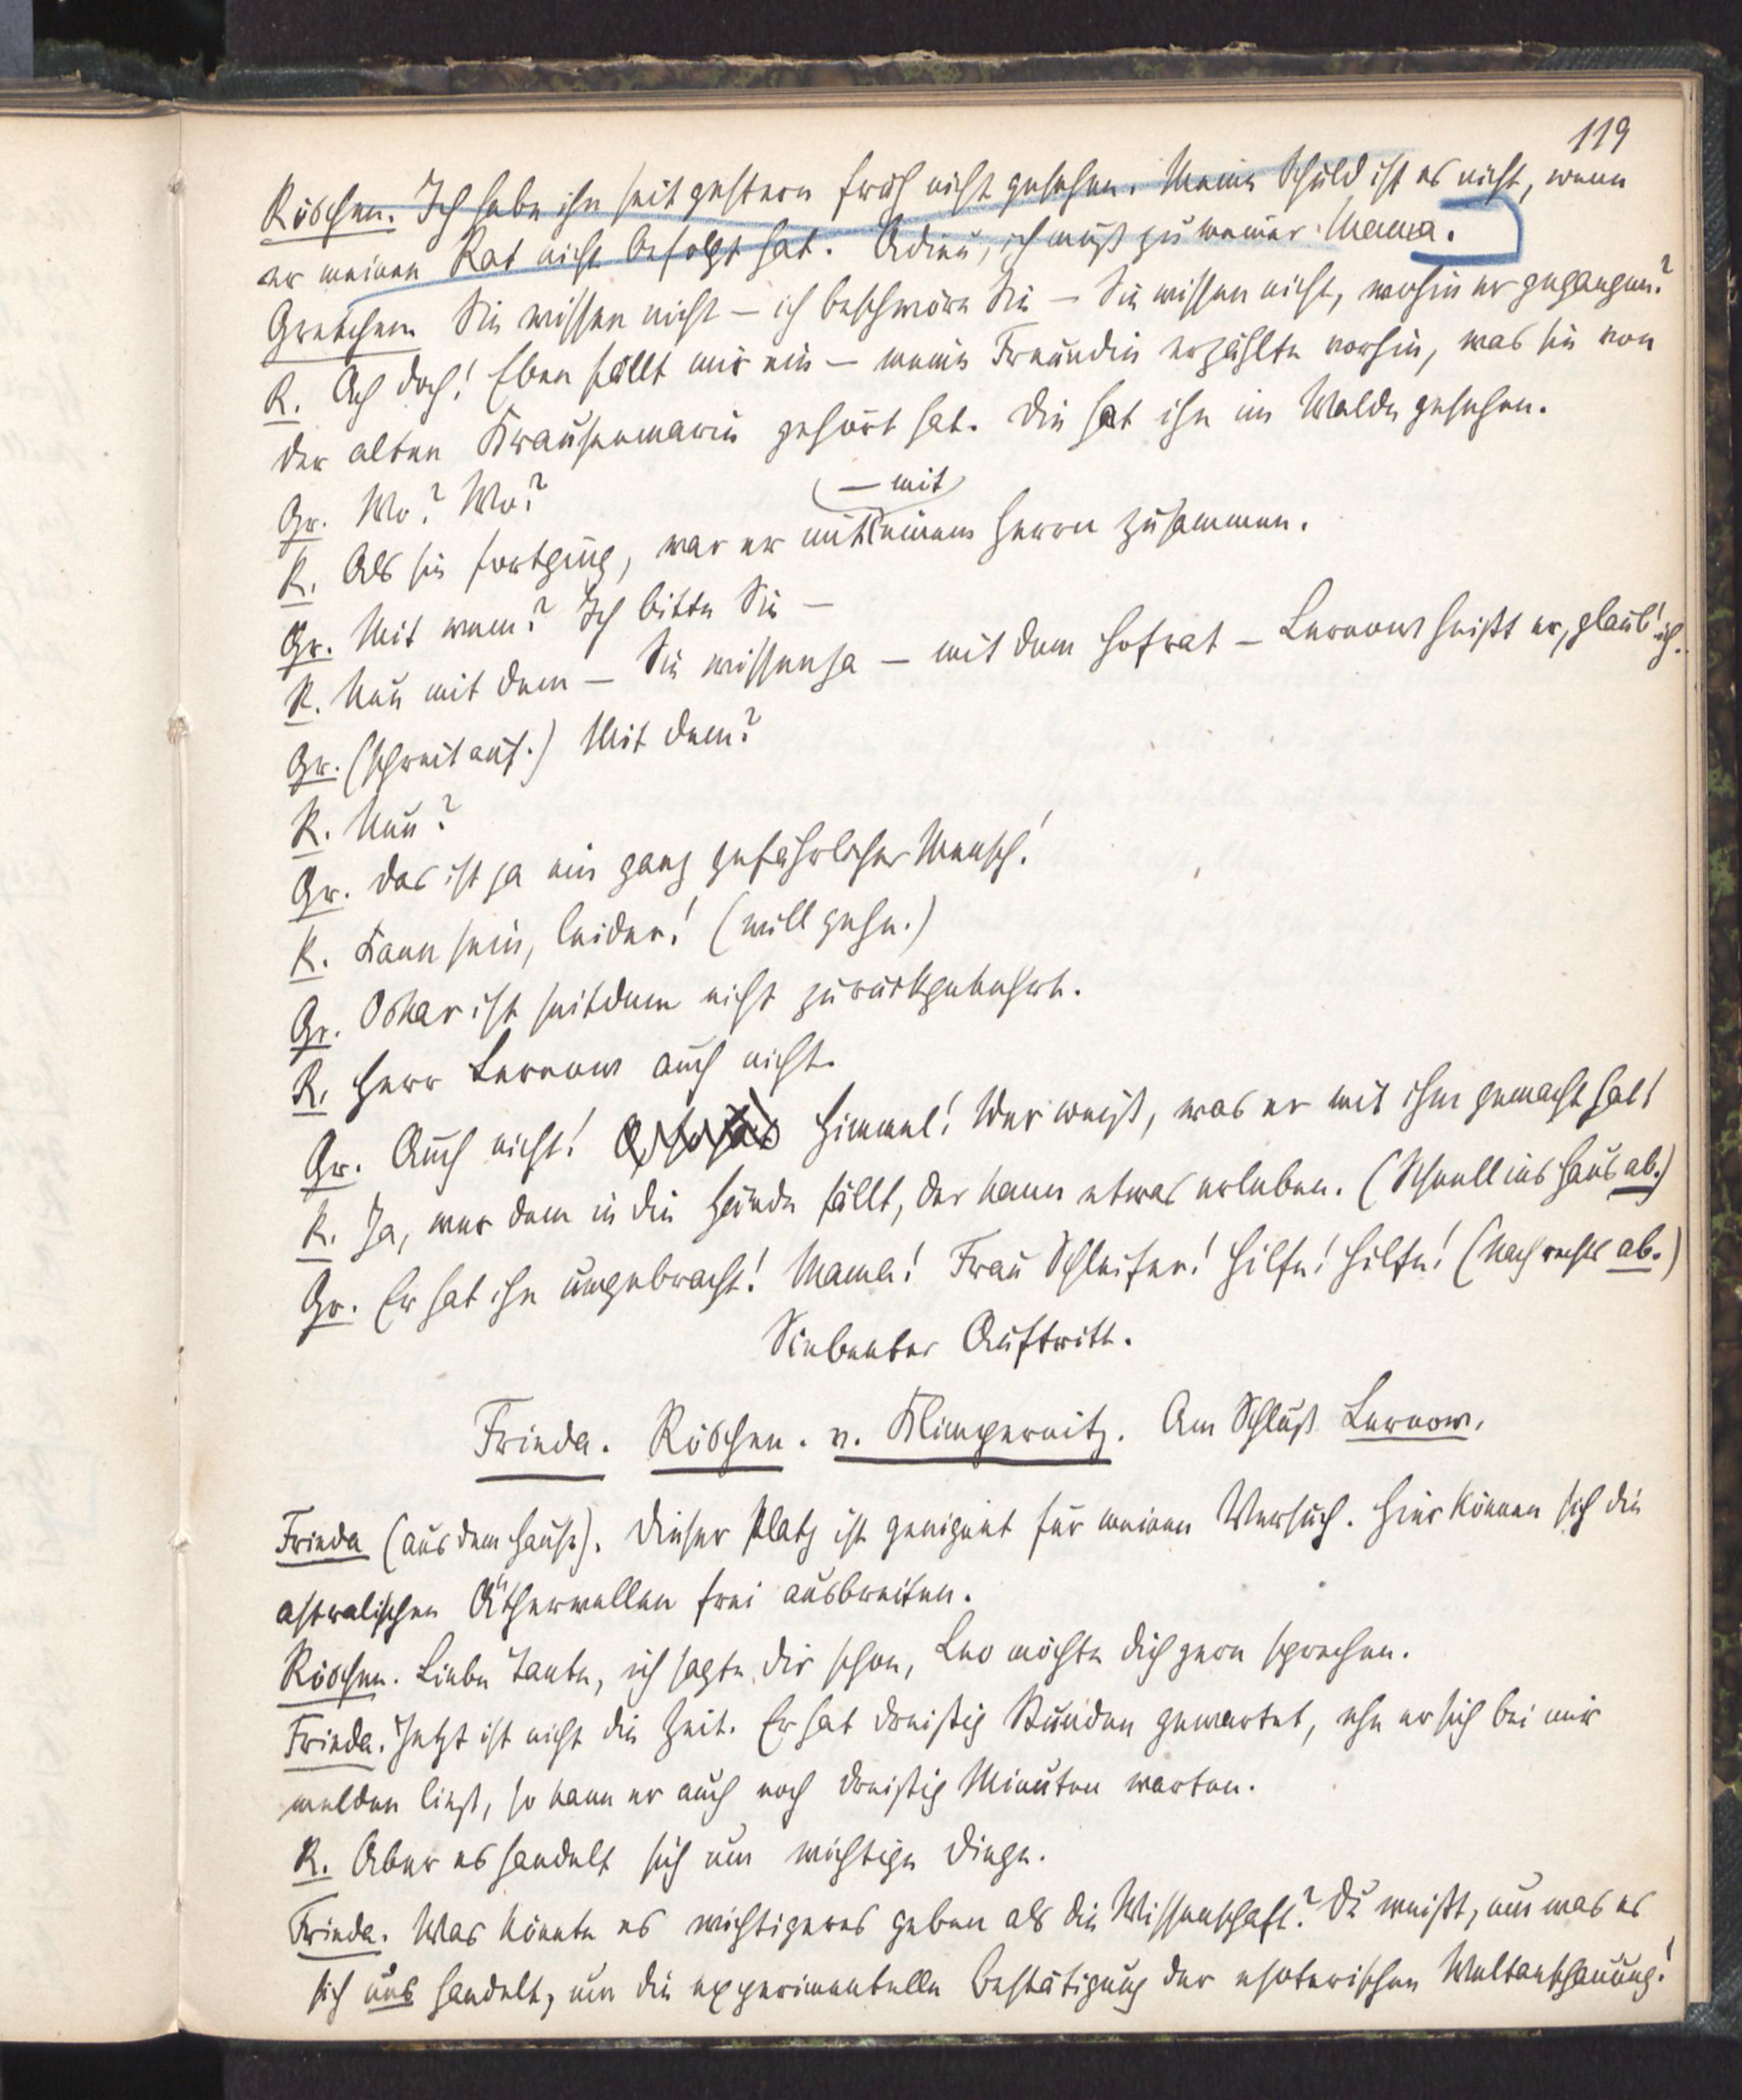 119
Röschen. Ich habe ihn seit gestern früh nicht gesehen. Meine Schuld ist es nicht, wenn
er meinen Rat nicht befolgt hat. Adieu, ich muß zu meiner Mama.
Gretchen. Sie wissen nicht – ich beschwöre Sie – Sie wissen nicht, wohin er gegangen?
R. Ach doch! Eben fällt mir ein – meine Freundin erzählte vorhin, was sie von
der alten Krausenmarie gehört hat. Die hat ihn im Walde gesehen.
Gr. Wo? Wo?
– mit
R. Als sie fortging, war er mit einem Herrn zusammen.
Gr. Mit wem? Ich bitte Sie –
R. Nun mit dem – Sie wissen ja – mit dem Hofrat – Lernow heißt er, glaub' ich.
Gr. (schreit auf.) Mit dem?
R. Nun?
Gr. Das ist ja ein ganz gefährlicher Mensch!
R. Kann sein, leider! (will gehn.)
Gr. Oskar ist seitdem nicht zurückgekehrt.
R. Herr Lernow auch nicht.
Gr. Auch nicht! Himmel! Wer weiß, was er mit ihm gemacht hat!
R. Ja, wer dem in die Hände fällt, der kann etwas erleben. (Schnell ins Haus ab.)
Gr. Er hat ihn umgebracht! Mama! Frau Schleifer! Hilfe! Hilfe! (Nach rechts ab.)
Siebenter Auftritt.
Frieda. Röschen. v. Klimpernitz. Am Schluß Lernow.
Frieda (aus dem Hause). Dieser Platz ist geeignet für meinen Versuch. Hier können sich die
astralischen Ätherwellen frei ausbreiten.
Röschen. Liebe Tante, ich sagte dir schon, Leo möchte dich gern sprechen.
Frieda. Jetzt ist nicht die Zeit. Er hat dreißig Stunden gewartet, ehe er sich bei mir
melden ließ, so kann er auch noch dreißig Minuten warten.
R. Aber es handelt sich um wichtige Dinge.
Frieda. Was könnte es wichtigeres geben als die Wissenschaft? Du weißt, um was es
sich uns handelt, um die experimentelle Bestätigung der esoterischen Weltanschauung!